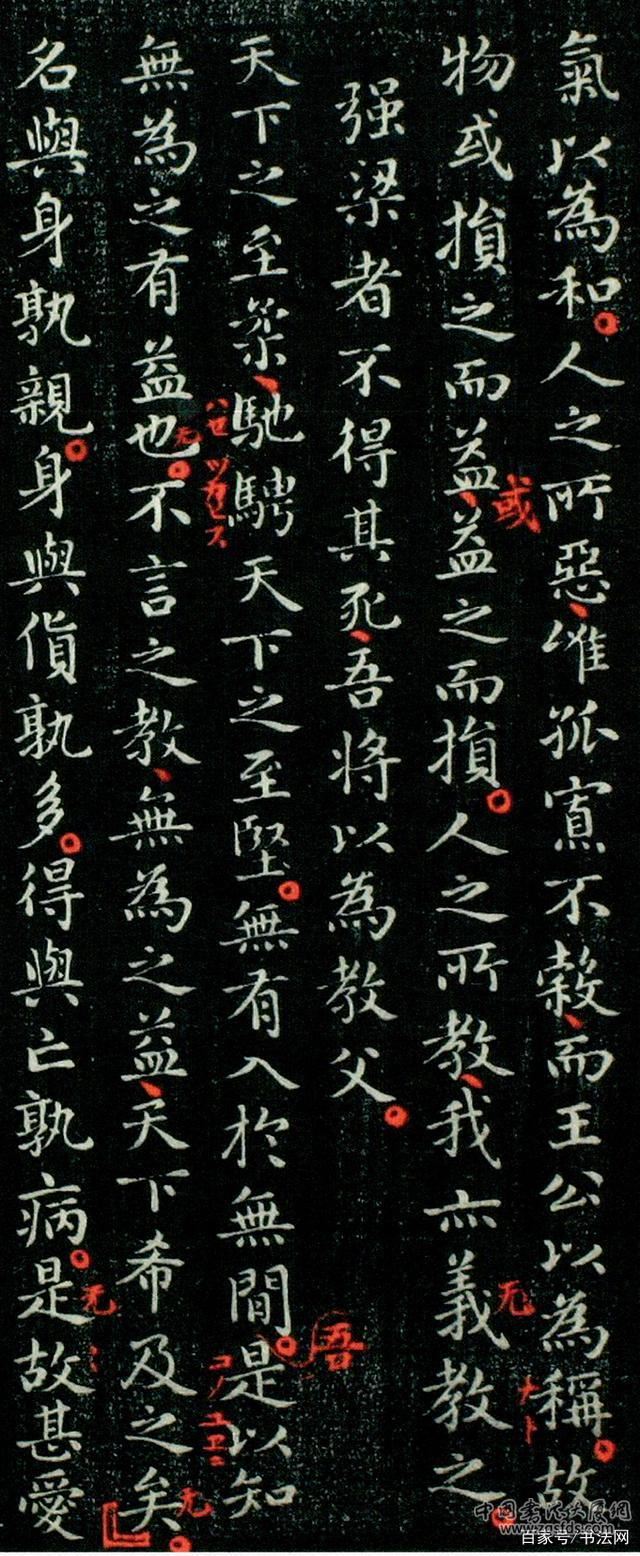 氣以為和。人之所惡、唯孤寡不穀、而王公以為稱。故
物或損之而益、益之而損。人之所教、我亦義教之。
或
无
强梁者不得其死、吾將以為教父。
天下之至柔、馳騁天下之至堅。無有入於無間。是以知
吾
無為之有益也。不言之教、無為之益、天下希及之矣。
无
无
名與身孰親。身與貨孰多。得與亡孰病。是故甚愛
无
百家号/书法网